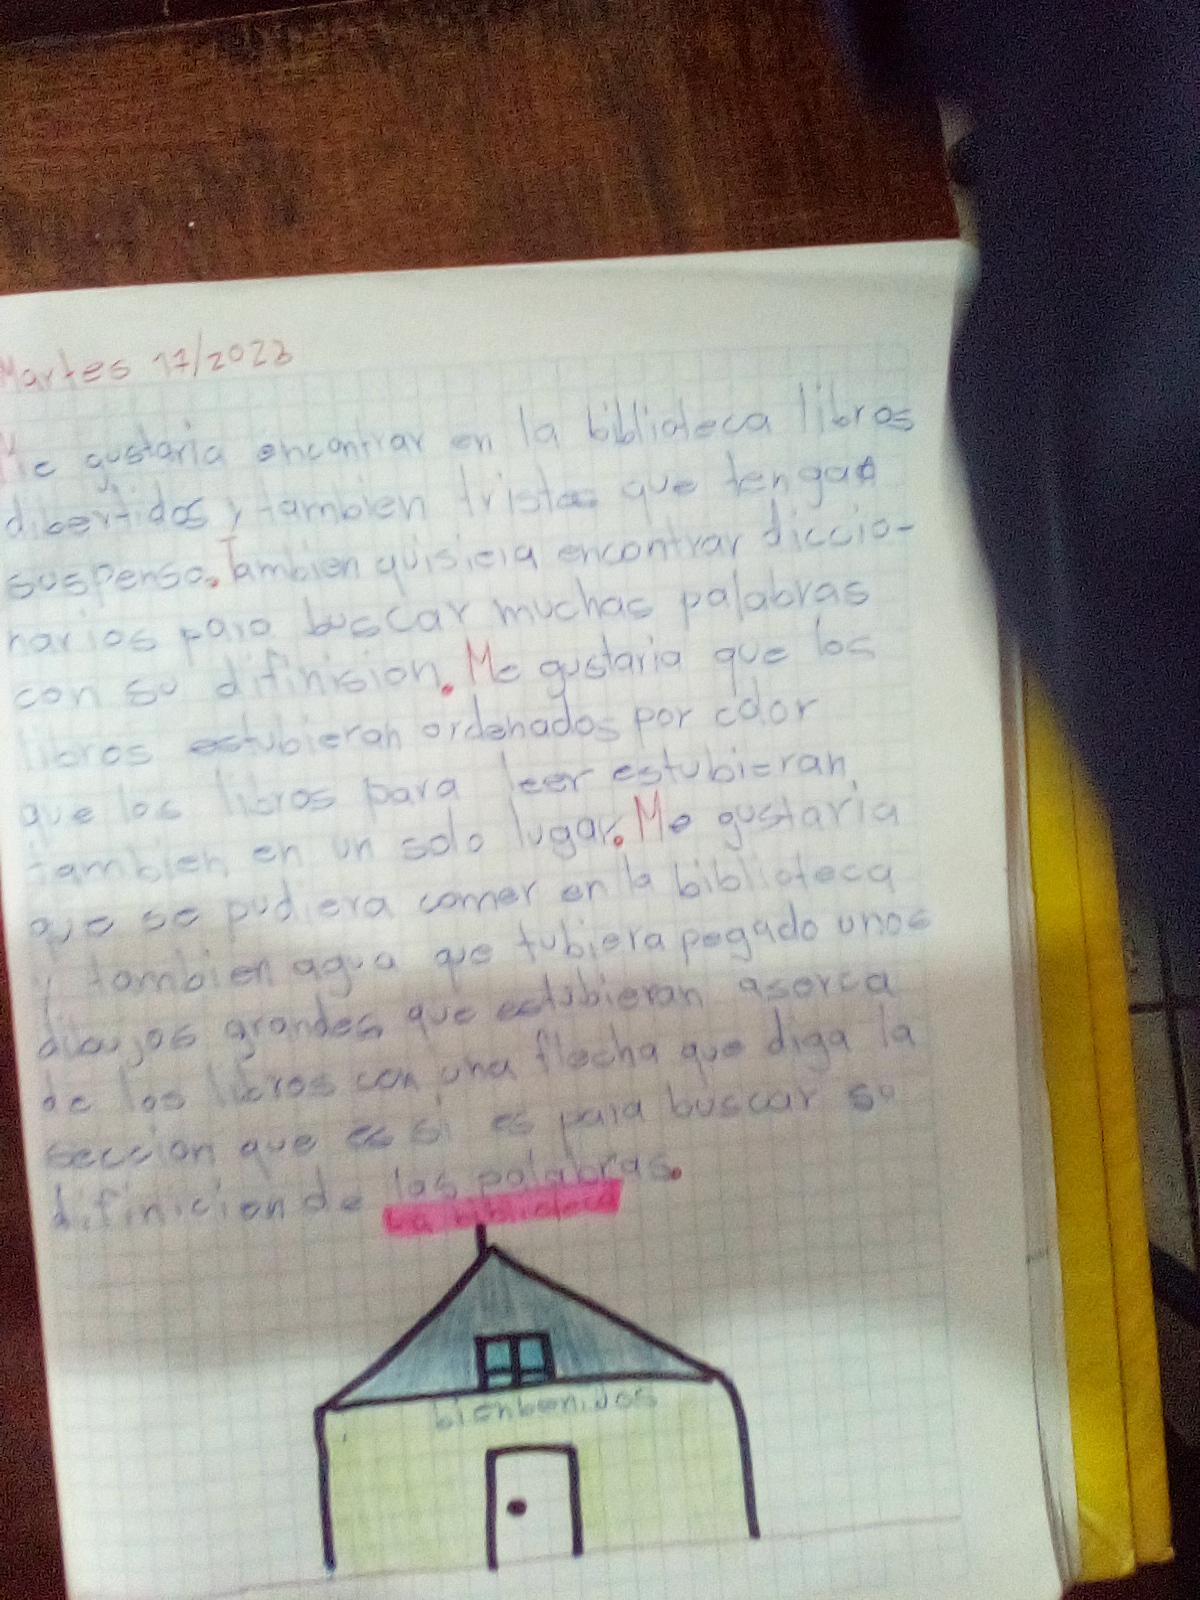 Martes 17/2023
Me gustaria encontrar en la biblioteca libros
dibertidos y tambien tristes que tengan
suspenso. Tambien quisiera encontrar diccio-
narios para buscar muchas palabras
con su difinision. Me gustaria que los
libros estubieran ordenados por color
que los libros para leer estubieran
tambien en un solo lugar. Me gustaria
que se pudiera comer en la biblioteca
y tambien agua que tubiera pegado unos
dibujos grandes que estubieran aserca
de los libros con una flecha que diga la
seccion que es si es para buscar su
difinicion de las palabras.
La biblioteca
bienbenidos